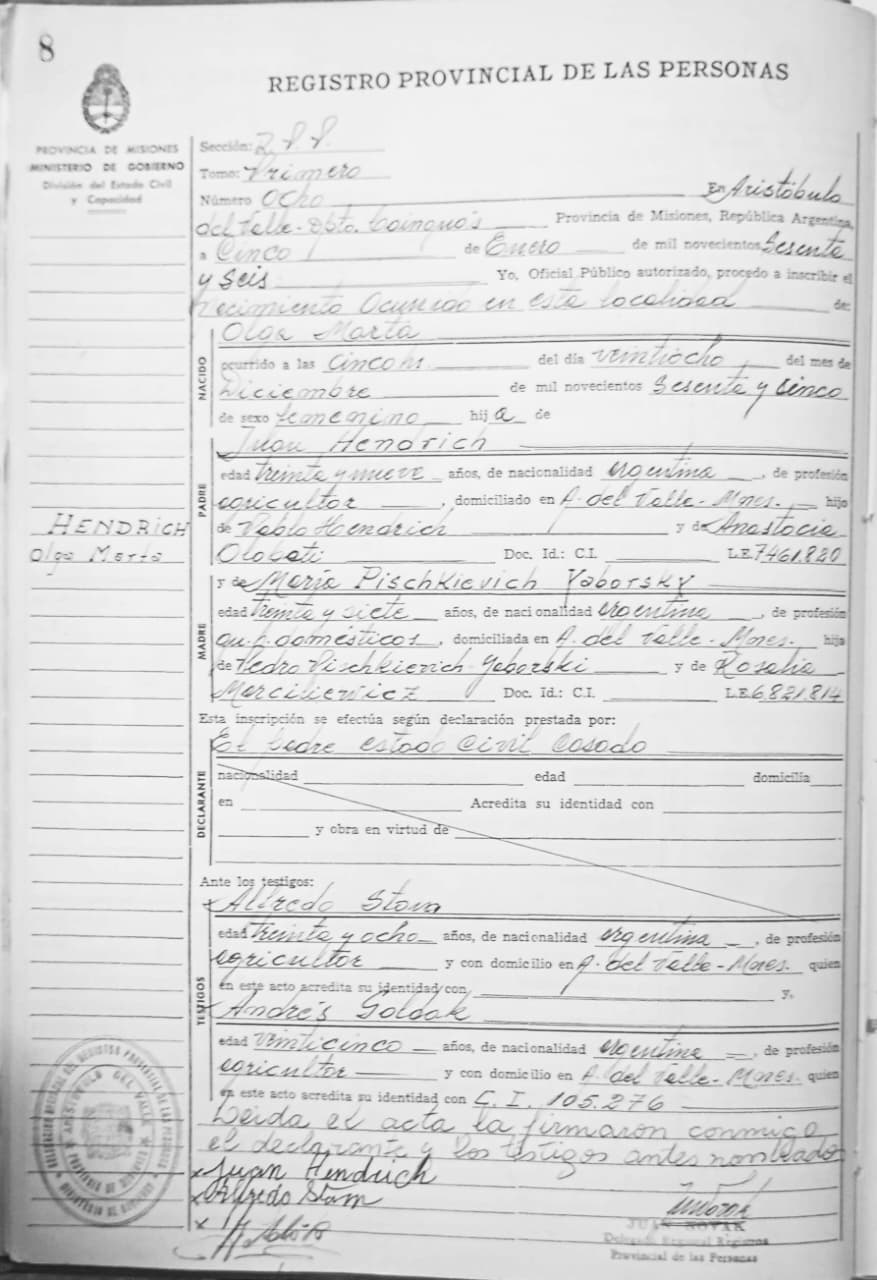 8
REGISTRO PROVINCIAL DE LAS PERSONAS
PROVINCIA DE MISIONES
MINISTERIO DE GOBIERNO
División del Estado Civil
y Capacidad
Sección: R.P.P.
Tomo: Primero
Número Ocho En Aristóbulo
del Valle - Dpto. Cainguás Provincia de Misiones, República Argentina,
a Cinco de Enero de mil novecientos Sesenta
y Seis Yo, Oficial Público autorizado, procedo a inscribir el
Nacimiento Ocurrido en esta localidad de:
NACIDO
Olga Marta
ocurrido a las Cinco hs del día Veintiocho del mes de
Diciembre de mil novecientos Sesenta y Cinco
de sexo femenino hija de
PADRE
Juan Hendrich
edad treinta y nueve años, de nacionalidad argentina, de profesión
agricultor, domiciliado en A. del Valle - Mnes. hijo
de Pablo Hendrich y de Anastacia
HENDRICH
Olga Marta
Doc. Id.: C.I. L.E. 7461.820
MADRE
y de María Pischkievich Yaborsky
edad treinta y siete años, de nacionalidad argentina, de profesión
qu. h. domésticos, domiciliada en A. del Valle - Mnes. hija
de Pedro Pischkievich Yaborski y de Rosalia
Marciliewicz Doc. Id.: C.I. L.E. 6.821.814
Esta inscripción se efectúa según declaración prestada por:
DECLARANTE
El padre estado Civil Casado
nacionalidad edad domicilia
en Acredita su identidad con
y obra en virtud de
Ante los testigos:
TESTIGOS
x Alfredo Stam
edad treinta y ocho años, de nacionalidad argentina, de profesión
agricultor y con domicilio en A. del Valle - Mnes. quien
en este acto acredita su identidad con y,
x Andrés Goldak
edad Veinticinco años, de nacionalidad argentina, de profesión
agricultor y con domicilio en A. del Valle - Mnes. quien
en este acto acredita su identidad con C.I. 105.276
Leida el acta la firmaron conmigo
el declarante y los testigos antes nombrados
x Juan Hendrich
x Alfredo Stam
x
JUAN NOVAK
Delegado Regional Registro
Provincial de las Personas
ARISTOBULO DEL VALLE